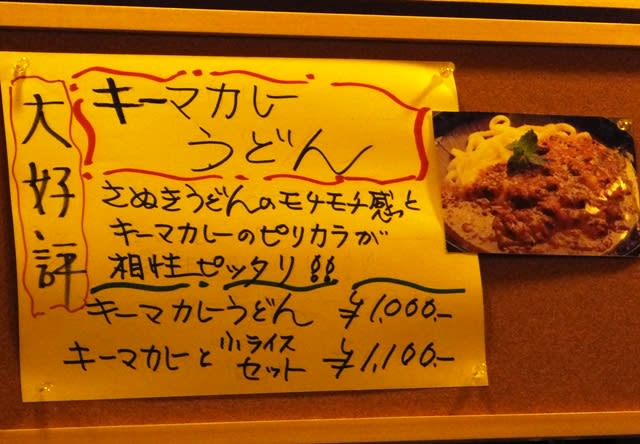 大好評
キーマカレー
うどん
さぬきうどんのモチモチ感と
キーマカレーのピリカラが
相性ピッタリ!!
キーマカレーうどん ¥1,000.-
キーマカレーと小ライスセット ¥1,100.-